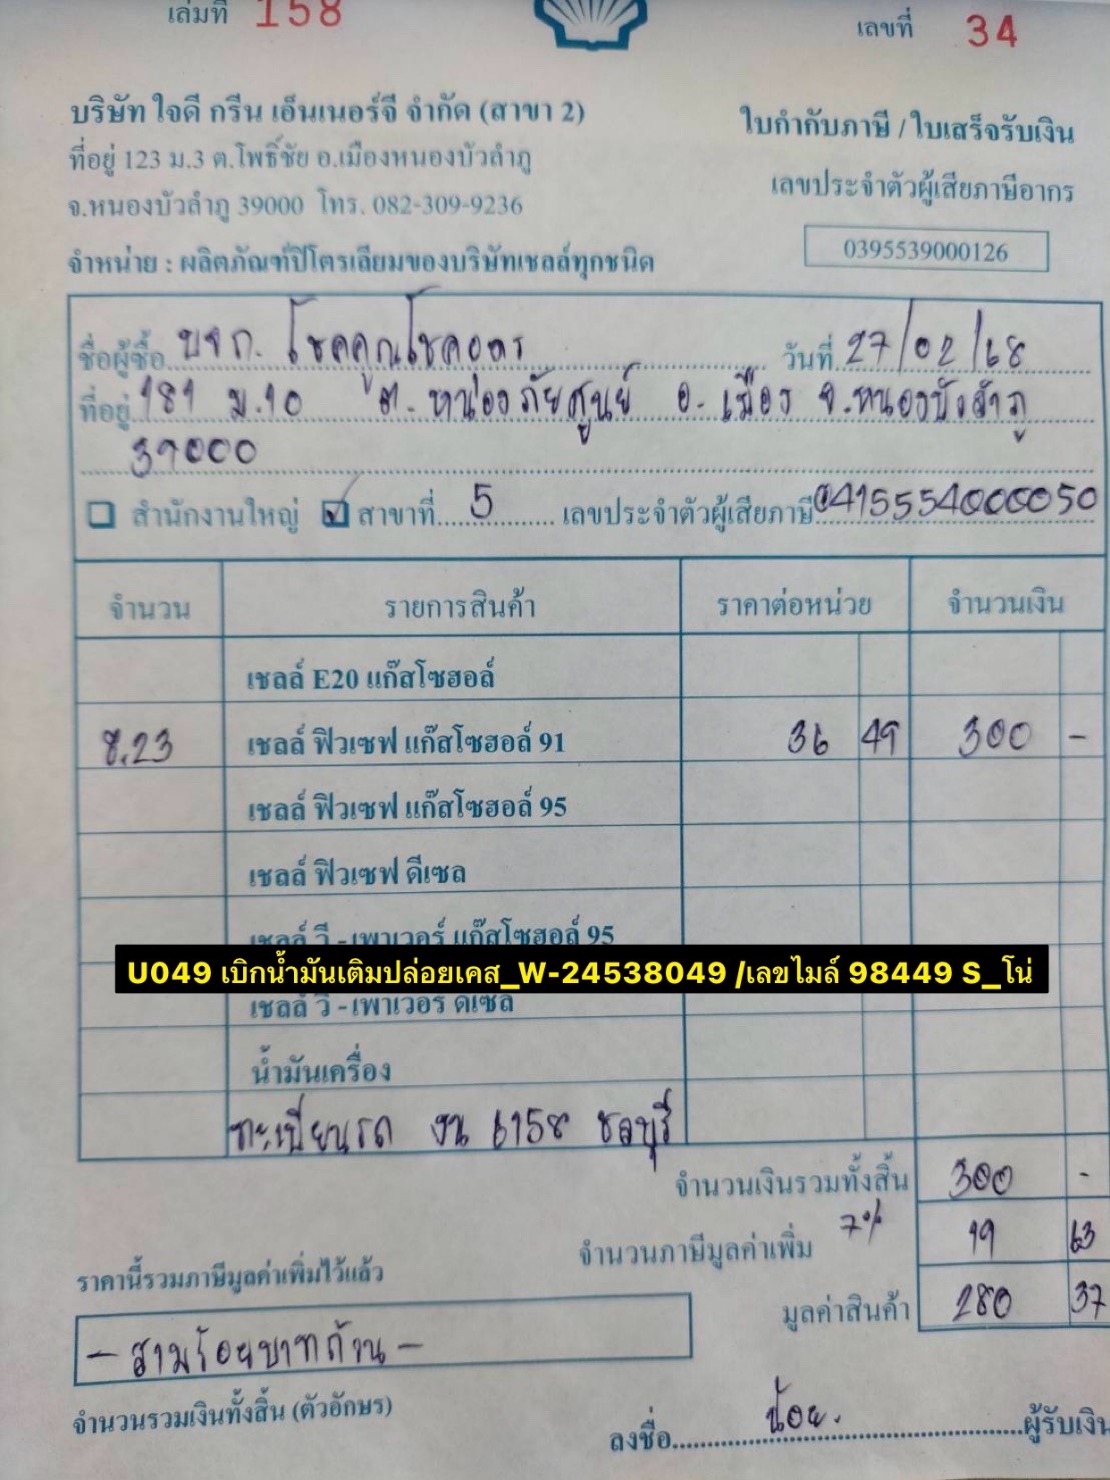 เล่มที่ 158
เลขที่ 34
บริษัท ใจดี กรีน เอ็นเนอร์จี จำกัด (สาขา 2)
ใบกำกับภาษี / ใบเสร็จรับเงิน
ที่อยู่ 123 ม.3 ต.โพธิ์ชัย อ.เมืองหนองบัวลำภู
เลขประจำตัวผู้เสียภาษีอากร
จ.หนองบัวลำภู 39000 โทร. 082-309-9236
0395539000126
จำหน่าย : ผลิตภัณฑ์ปิโตรเลียมของบริษัทเชลล์ทุกชนิด
ชื่อผู้ซื้อ บจก. โชคคูณโชคอุดร วันที่ 27/02/68
ที่อยู่ 181 ม.10 ต.หน่องภัยศูนย์ อ.เมือง จ.หนองบัวลำภู
39000
สำนักงานใหญ่ สาขาที่ 5 เลขประจำตัวผู้เสียภาษี 0415554000050
จำนวน รายการสินค้า ราคาต่อหน่วย จำนวนเงิน
เชลล์ E20 แก๊สโซฮอล์
8.23 เชลล์ ฟิวเซฟ แก๊สโซฮอล์ 91 36 49 300 -
เชลล์ ฟิวเซฟ แก๊สโซฮอล์ 95
เชลล์ ฟิวเซฟ ดีเซล
เชลล์ วี - เพาเวอร์ แก๊สโซฮอล์ 95
U049 เบิกน้ำมันเติมปล่อยเคส_W-24538049 /เลขไมล์ 98449 S_โน่
เชลล์ วี - เพาเวอร์ ดีเซล
น้ำมันเครื่อง
ทะเบียนรถ งน 6158 ชลบุรี
จำนวนเงินรวมทั้งสิ้น 300 -
จำนวนภาษีมูลค่าเพิ่ม 7% 19 63
ราคานี้รวมภาษีมูลค่าเพิ่มไว้แล้ว
มูลค่าสินค้า 280 37
- สามร้อยบาทถ้วน -
จำนวนรวมเงินทั้งสิ้น (ตัวอักษร)
ลงชื่อ น้อย. ผู้รับเงิน